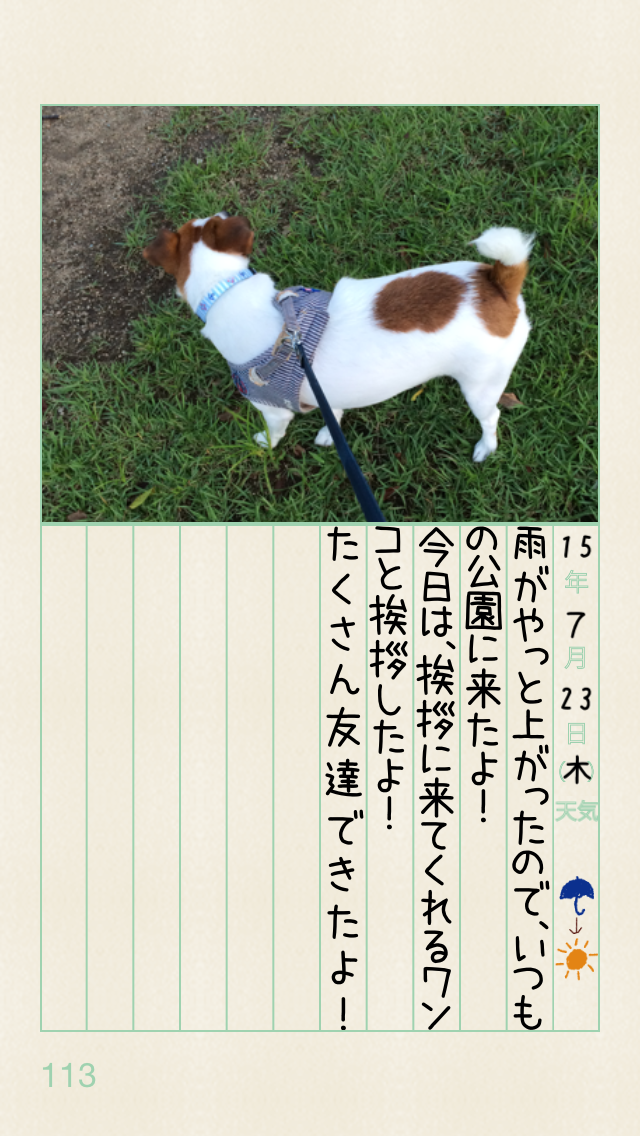 15年7月23日(木)天気
雨がやっと上がったので、いつも
の公園に来たよ！
今日は、挨拶に来てくれるワン
コと挨拶したよ！
たくさん友達できたよ！
113